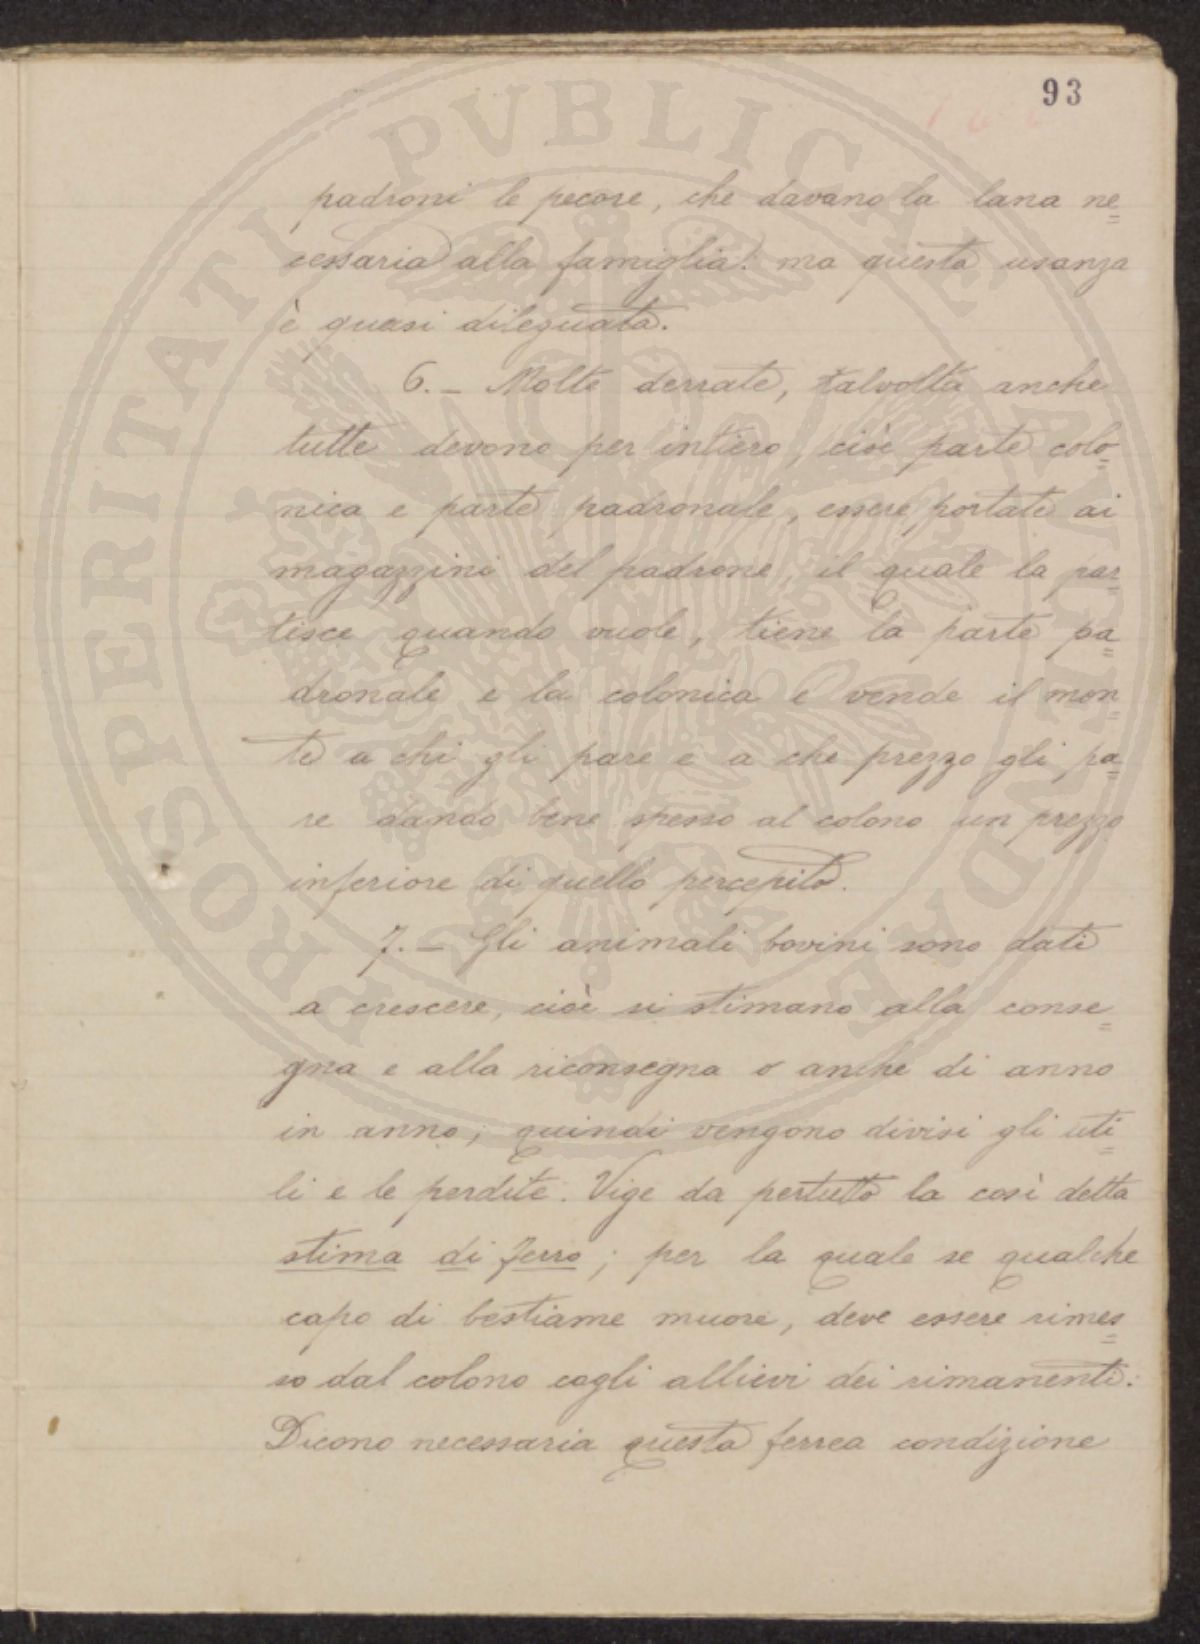 93
padroni le pecore, che davano la lana ne=
cessaria alla famiglia: ma questa usanza
è quasi dileguata.
6. – Molte derrate, talvolta anche
tutte devono per intiero, cioè parte colo=
nica e parte padronale, essere portate ai
magazzini del padrone, il quale la par=
tisce quando vuole, tiene la parte pa=
dronale e la colonica e vende il mon=
te a chi gli pare e a che prezzo gli pa=
re dando bene spesso al colono un prezzo
inferiore di quello percepito.
7. – Gli animali bovini sono dati
a crescere, cioè si stimano alla conse=
gna e alla riconsegna o anche di anno
in anno; quindi vengono divisi gli uti=
li e le perdite. Vige da pertutto la così detta
stima di ferro; per la quale se qualche
capo di bestiame muore, deve essere rimes=
so dal colono cogli allievi dei rimanenti.
Dicono necessaria questa ferrea condizione
PROSPERITATI PVBLICAE AVGENDAE